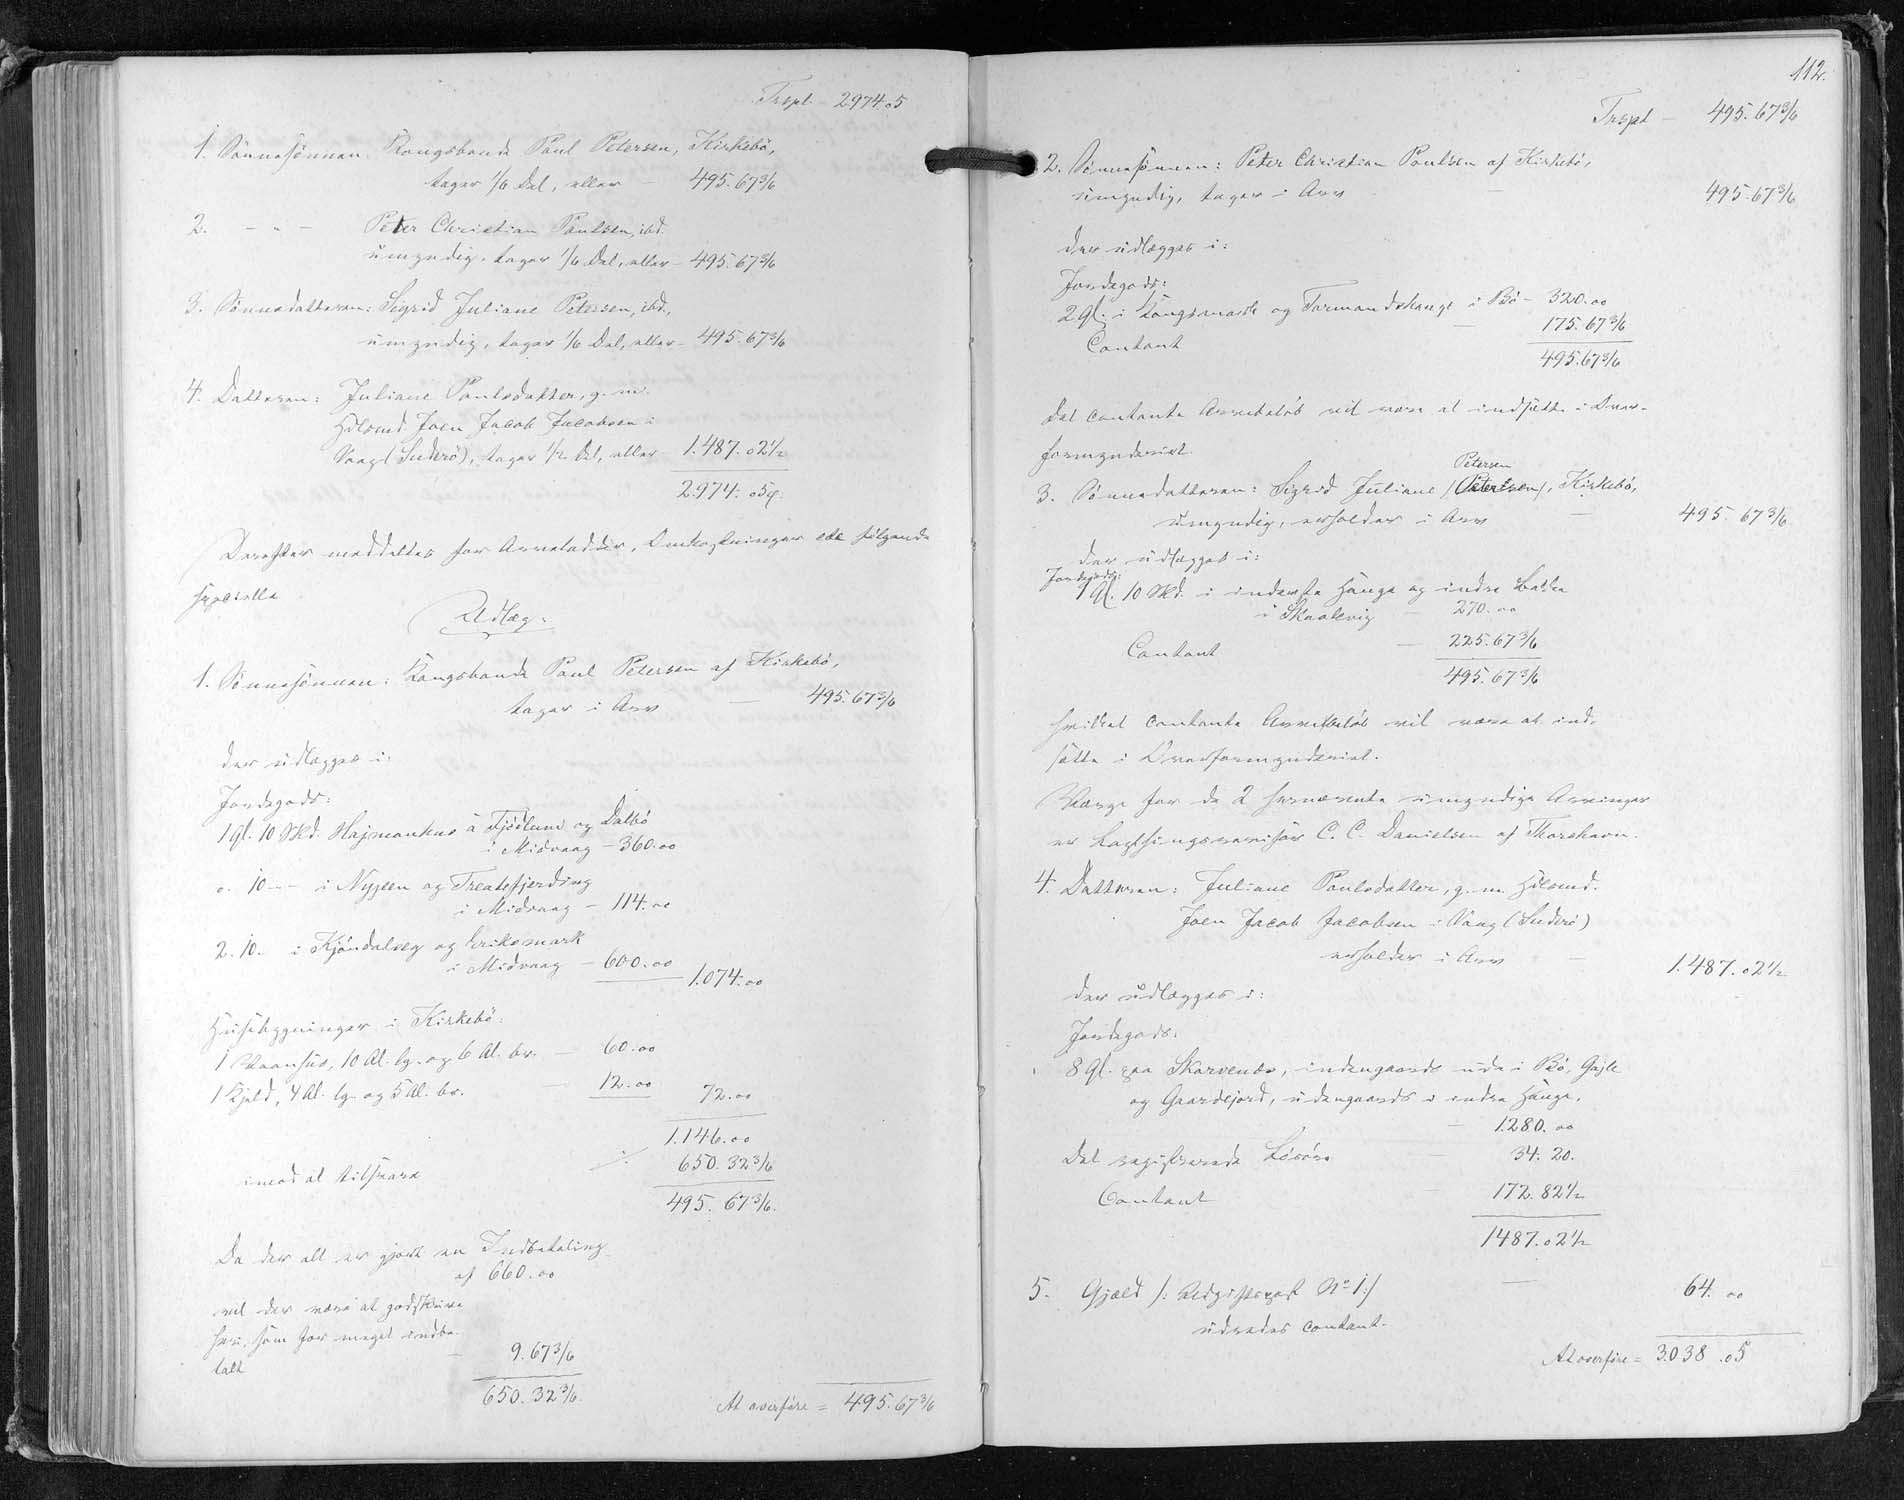 Trspt – 2974.05
1. Sönnesönnen: Kongsbonde Paul Petersen, Kirkebö,
tager 1/6 Del, eller – 495.67 3/6
2. – " – Peter Christian Paulsen, ibd.
umyndig, tager 1/6 Del, eller – 495.67 3/6
3. Sönnedatteren: Sigrid Juliane Petersen, ibd.,
umyndig, tager 1/6 Del, eller – 495.67 3/6
4. Datteren: Juliane Paulsdatter, g. m.
Huusmd. Joen Jacob Jacobsen i
Vaag (Suderö), tager 1/2 Del, eller 1.487.02 1/2
2.974.05
Derefter meddeltes for Arvelodder, Omkostninger etc følgende
specielle
Udlæg:
1. Sönnesönnen: Kongsbonde Paul Petersen af Kirkebö,
tager i Arv – 495.67 3/6
der udlægges i:
Jordegods:
1 Gl. 10 Skd. Hajmanhus à Fjödlum og Dalbö
i Midvaag – 360.00
o. 10 – – i Nygen og Treatefjerding
i Midvaag – 114.00
2. 10 – i Kjöndalseg og Eriksmark
i Midvaag – 600.00
1.074.00
Husebygninger i Kirkebö:
1 Baanhus, 10 Al. lg. og 6 Al. br. – 60.00
1 Kjeld, 4 Al. lg. og 3 Al. br. – 12.00
72.00
1.146.00
imod at tilsvare ÷ 650.32 3/6
495.67 3/6.
Da der alt er gjort en Indbetaling
af 660.00
vil der være at godskrive
ham, som for meget indbe-
talt – 9.67 3/6
650.32 3/6.
At overføre = 495.67 3/6
112.
Trspt – 495.67 3/6
2. Sönnesönnen: Peter Christian Paulsen af Kirkebö,
umyndig, tager i Arv – 495.67 3/6
der udlægges i:
Jordegods:
2 Gl. i Kongsmark og Tormandshauge i Bö – 320.00
Contant – 175.67 3/6
495.67 3/6
Det contante Arvebeløb vil være at indsætte i Over-
formynderiet.
Petersen
3. Sönnedatteren: Sigrid Juliane /Petersen/, Kirkebö,
umyndig, erholder i Arv – 495.67 3/6
der udlægges i:
Jordegods:
1 Gl. 10 Skd. i inderste Hauge og indre Batten
i Skaalevig – 270.00
Contant – 225.67 3/6
495.67 3/6
hvilket contante Arvebeløb vil være at ind-
sætte i Overformynderiet.
Værge for de 2 førnævnte umyndige Arvinger
er Lagthingsrevisor C. C. Danielsen af Thorshavn.
4. Datteren: Juliane Paulsdatter, g. m. Huusmd.
Joen Jacob Jacobsen i Vaag (Suderö)
erholder i Arv – 1.487.02 1/2
der udlægges i:
Jordegods:
8 Gl. paa Skarvenæs, indengaards ude i Bö, Gajle
og Gaardsjord, udengaards i indre Hauge,
– 1280.00
Det registrerede Løsøre – 34.20.
Contant – 172.82 1/2
1487.02 1/2
5. Gjæld /: Udgiftspost No 1:/ – 64.00
udredes contant.
At overføre = 3.038.05